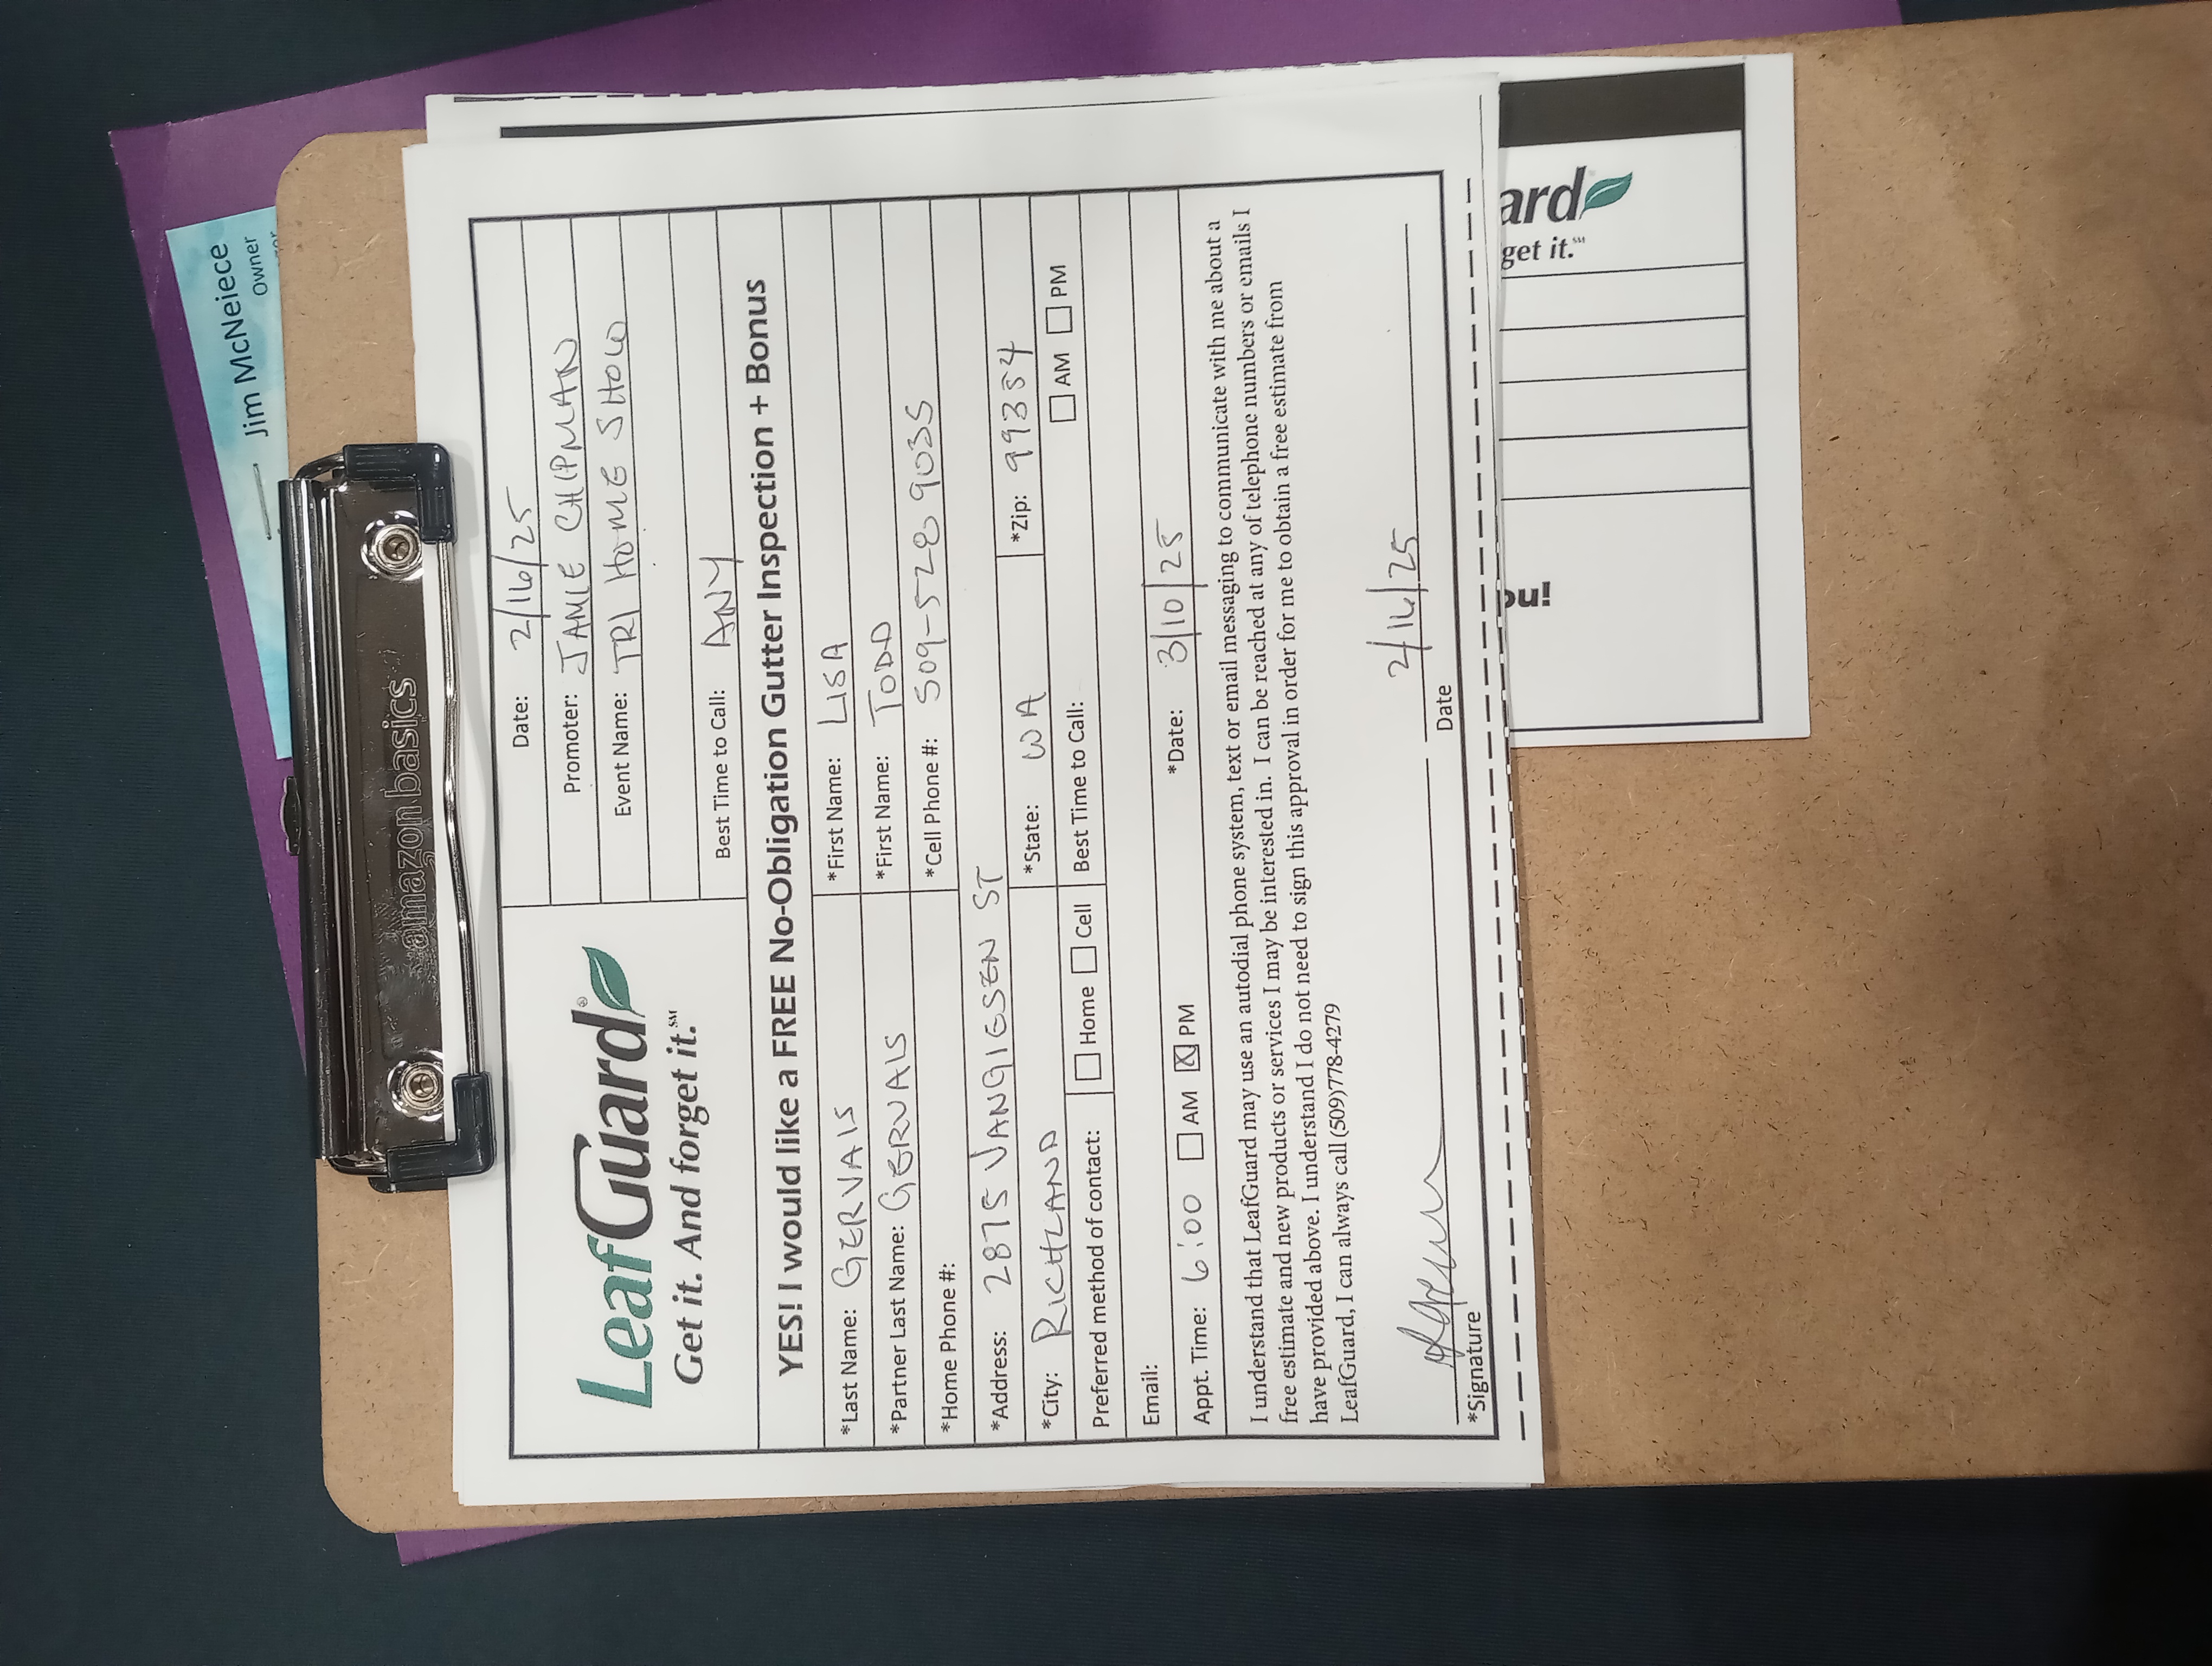 Jim McNeiece
Owner
amazon basics
LeafGuard®
Get it. And forget it.℠
Date: 2/16/25
Promoter: JAMIE CHIPMAN
Event Name: TRI HOME SHOW
Best Time to Call: ANY
YES! I would like a FREE No-Obligation Gutter Inspection + Bonus
*Last Name: GERVAIS *First Name: LISA
*Partner Last Name: GERVAIS *First Name: TODD
*Home Phone #: *Cell Phone #: 509-528 9035
*Address: 2875 VANGIESEN ST
*City: RICHLAND *State: WA *Zip: 99354
Preferred method of contact: Home Cell Best Time to Call: AM PM
Email:
Appt. Time: 6:00 AM PM *Date: 3/10/25
I understand that LeafGuard may use an autodial phone system, text or email messaging to communicate with me about a
free estimate and new products or services I may be interested in. I can be reached at any of telephone numbers or emails I
have provided above. I understand I do not need to sign this approval in order for me to obtain a free estimate from
LeafGuard, I can always call (509)778-4279
2/16/25
*Signature Date
ard
get it.℠